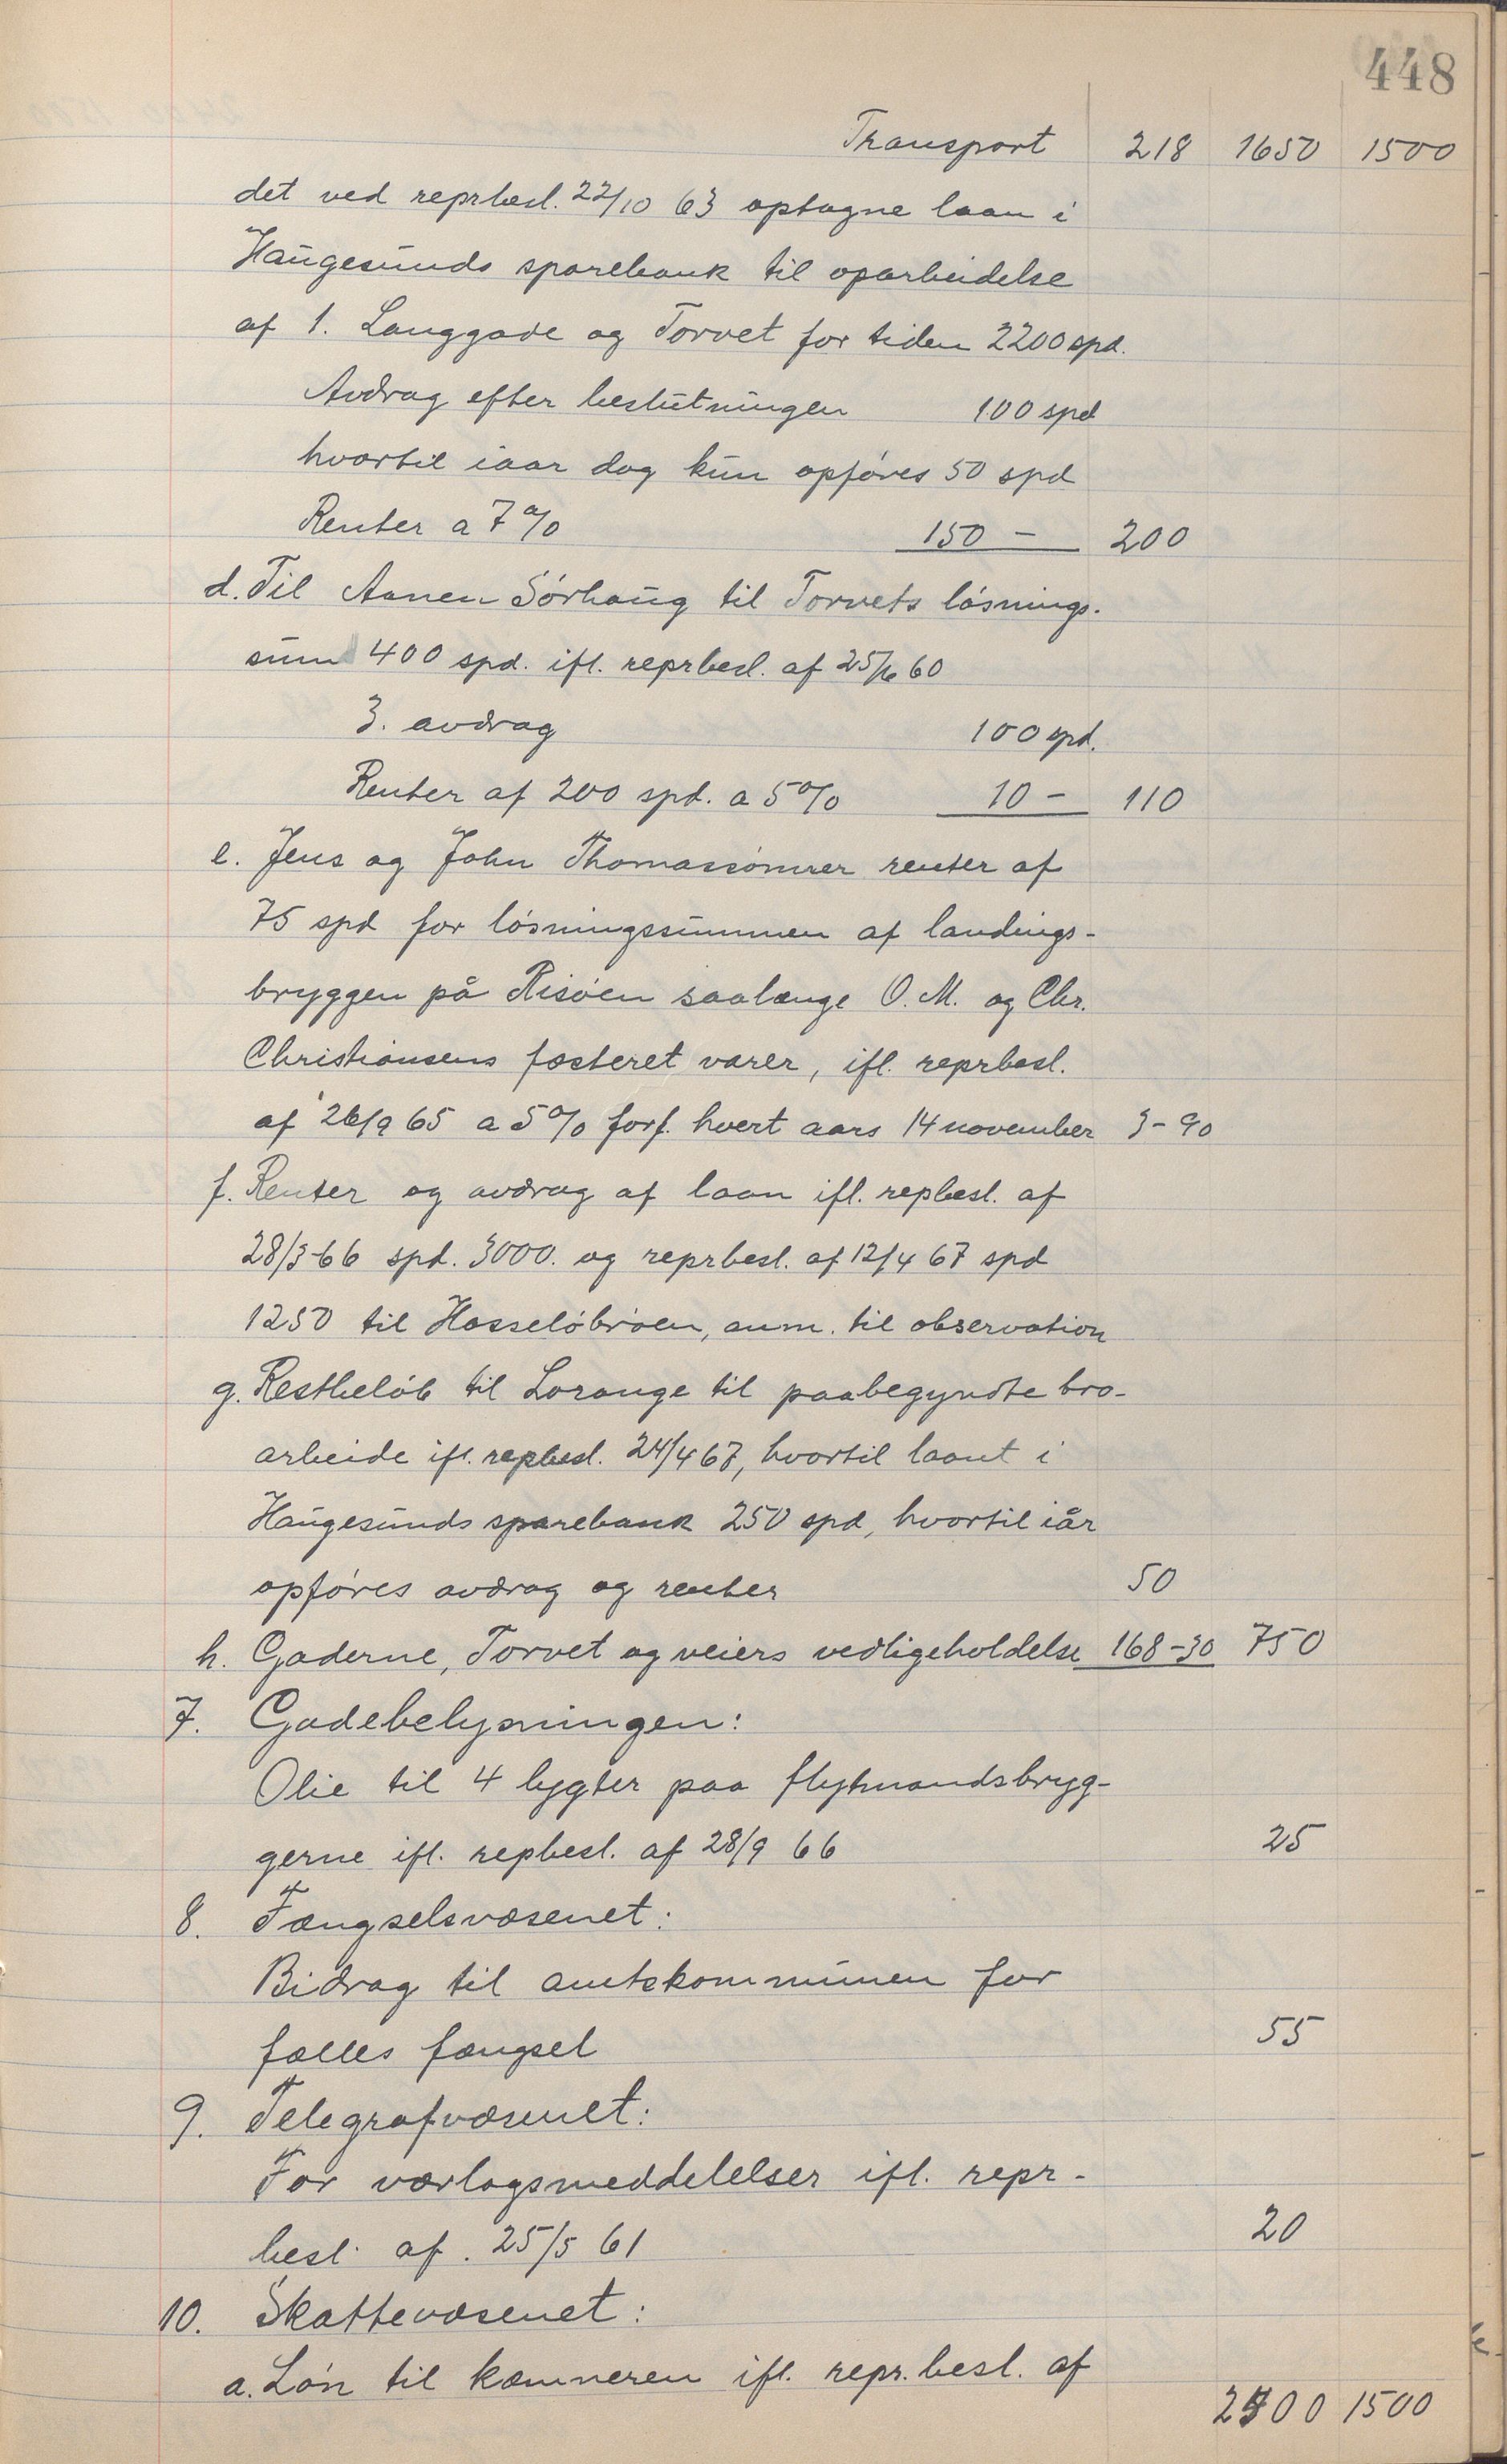 448
Transport 218 1650 1500
det ved reprbesl. 22/10 63 optagne laan i
Haugesunds sparebank til oparbeidelse
af 1. Langgade og Torvet for tiden 2200 spd.
Avdrag efter beslutningen 100 spd
hvortil iaar dog kun opføres 50 spd
Renter a 7% 150 – 200
d. Til Aanen Sørhaug til Torvets løsnings-
sum 400 spd. ifl. reprbesl. af 25/6 60
3. avdrag 100 spd.
Renter af 200 spd. a 5% 10 – 110
e. Jens og John Thomassønner renter af
75 spd for løsningssummen af landings-
bryggen på Risøen saalænge O. M. og Chr.
Christiansens fæsteret varer, ifl. reprbesl.
af 26/9 65 a 5% forf. hvert aars 14 november 3-90
f. Renter og avdrag af laan ifl. repbesl. af
28/3-66 spd. 3000. og reprbesl. af 12/4 67 spd
1250 til Hasseløbroen, anm. til observation
g. Restbeløb til Lorange til paabegyndte bro-
arbeide ifl. repbesl. 24/4 67, hvortil laant i
Haugesunds sparebank 250 spd, hvortil iår
opføres avdrag og renter 50
h. Gaderne, Torvet og veiers vedligeholdelse 168-30 750
7. Gadebelysningen:
Olie til 4 lygter paa fløtmandsbryg-
gerne ifl. repbesl. af 28/9 66 25
8. Fængselsvæsenet:
Bidrag til amtskommunen for
fælles fængsel 55
9. Telegrafvæsenet:
For værlagsmeddelelser ifl. repr-
besl. af. 25/5 61 20
10. Skattevæsenet:
a. Løn til kæmneren ifl. repr. besl. af
2500 1500